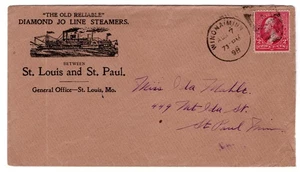 "THE OLD RELIABLE"
DIAMOND JO LINE STEAMERS.
BETWEEN
St. Louis and St. Paul.
General Office—St. Louis, Mo.
WINONA, MINN.
7
98
Miss Ida
449
St.
St Paul Minn